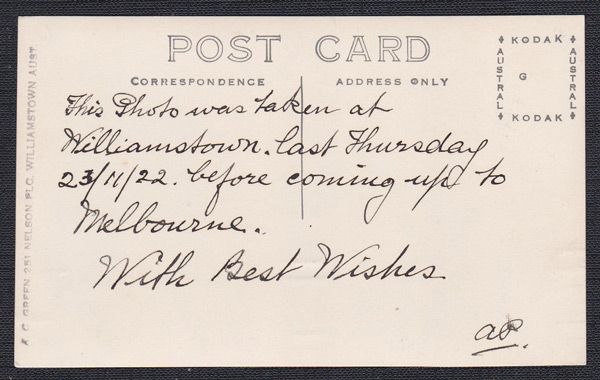 POST CARD
CORRESPONDENCE
ADDRESS ONLY
KODAK
AUSTRAL
G
AUSTRAL
KODAK
This Photo was taken at
Williamstown. last Thursday
23/11/22. before coming up to
Melbourne.
With Best Wishes
GREEN 251 NELSON PLC. WILLIAMSTOWN AUST.